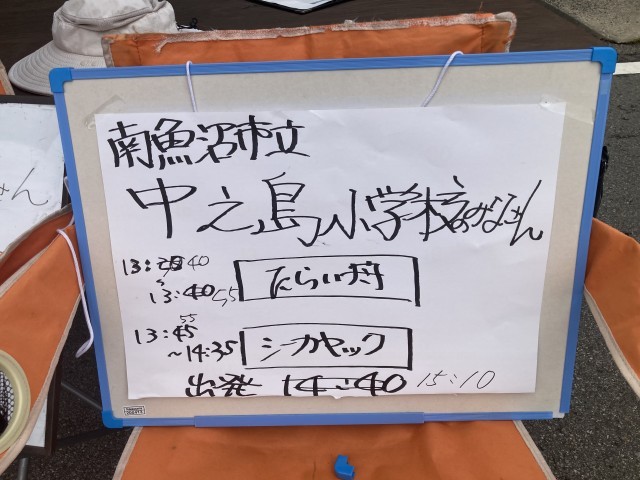 南魚沼市立
中之島小学校のみなさん
13:40
13:40 55
たらい舟
55
13:45
~14:35
シーカヤック
出発 14:40 15:10
さん